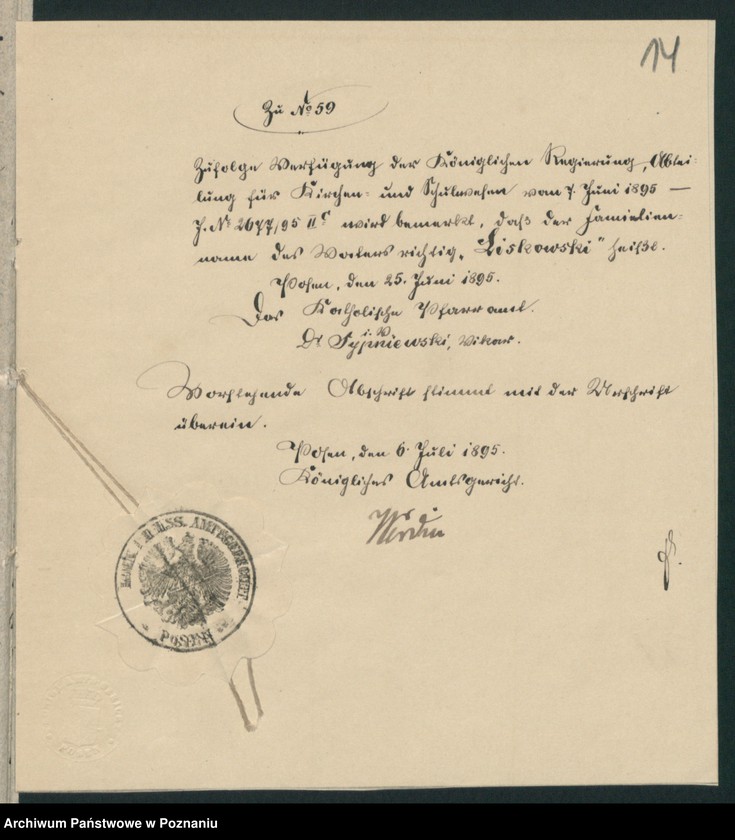 14
Zu No 59
Zufolge Verfügung der Königlichen Regierung, Abtei-
lung für Kirchen- und Schulwesen vom 7. Juni 1895 —
J. No 2677/95 II c wird bemerkt, daß der Familien-
name des Vaters richtig „Liskowski" heißt.
Posen, den 25. Juni 1895.
Das Katholische Pfarramt.
i. V.
Dr Sypniewski, Vikar.
Vorstehende Abschrift stimmt mit der Urschrift
überein.
Posen, den 6. Juli 1895.
Königliches Amtsgericht.
KÖNIGL. PREUSS. AMTSGERICHT
POSEN
Archiwum Państwowe w Poznaniu